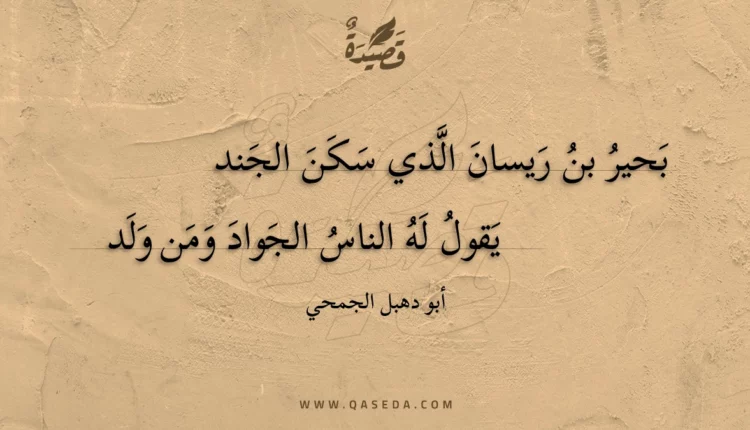 قَصِيدَةٌ
بَحيرُ بنُ رَيسانَ الَّذي سَكَنَ الجَند
يَقولُ لَهُ الناسُ الجَوادَ وَمَن وَلَد
أبو دهبل الجمحي
WWW.QASEDA.COM